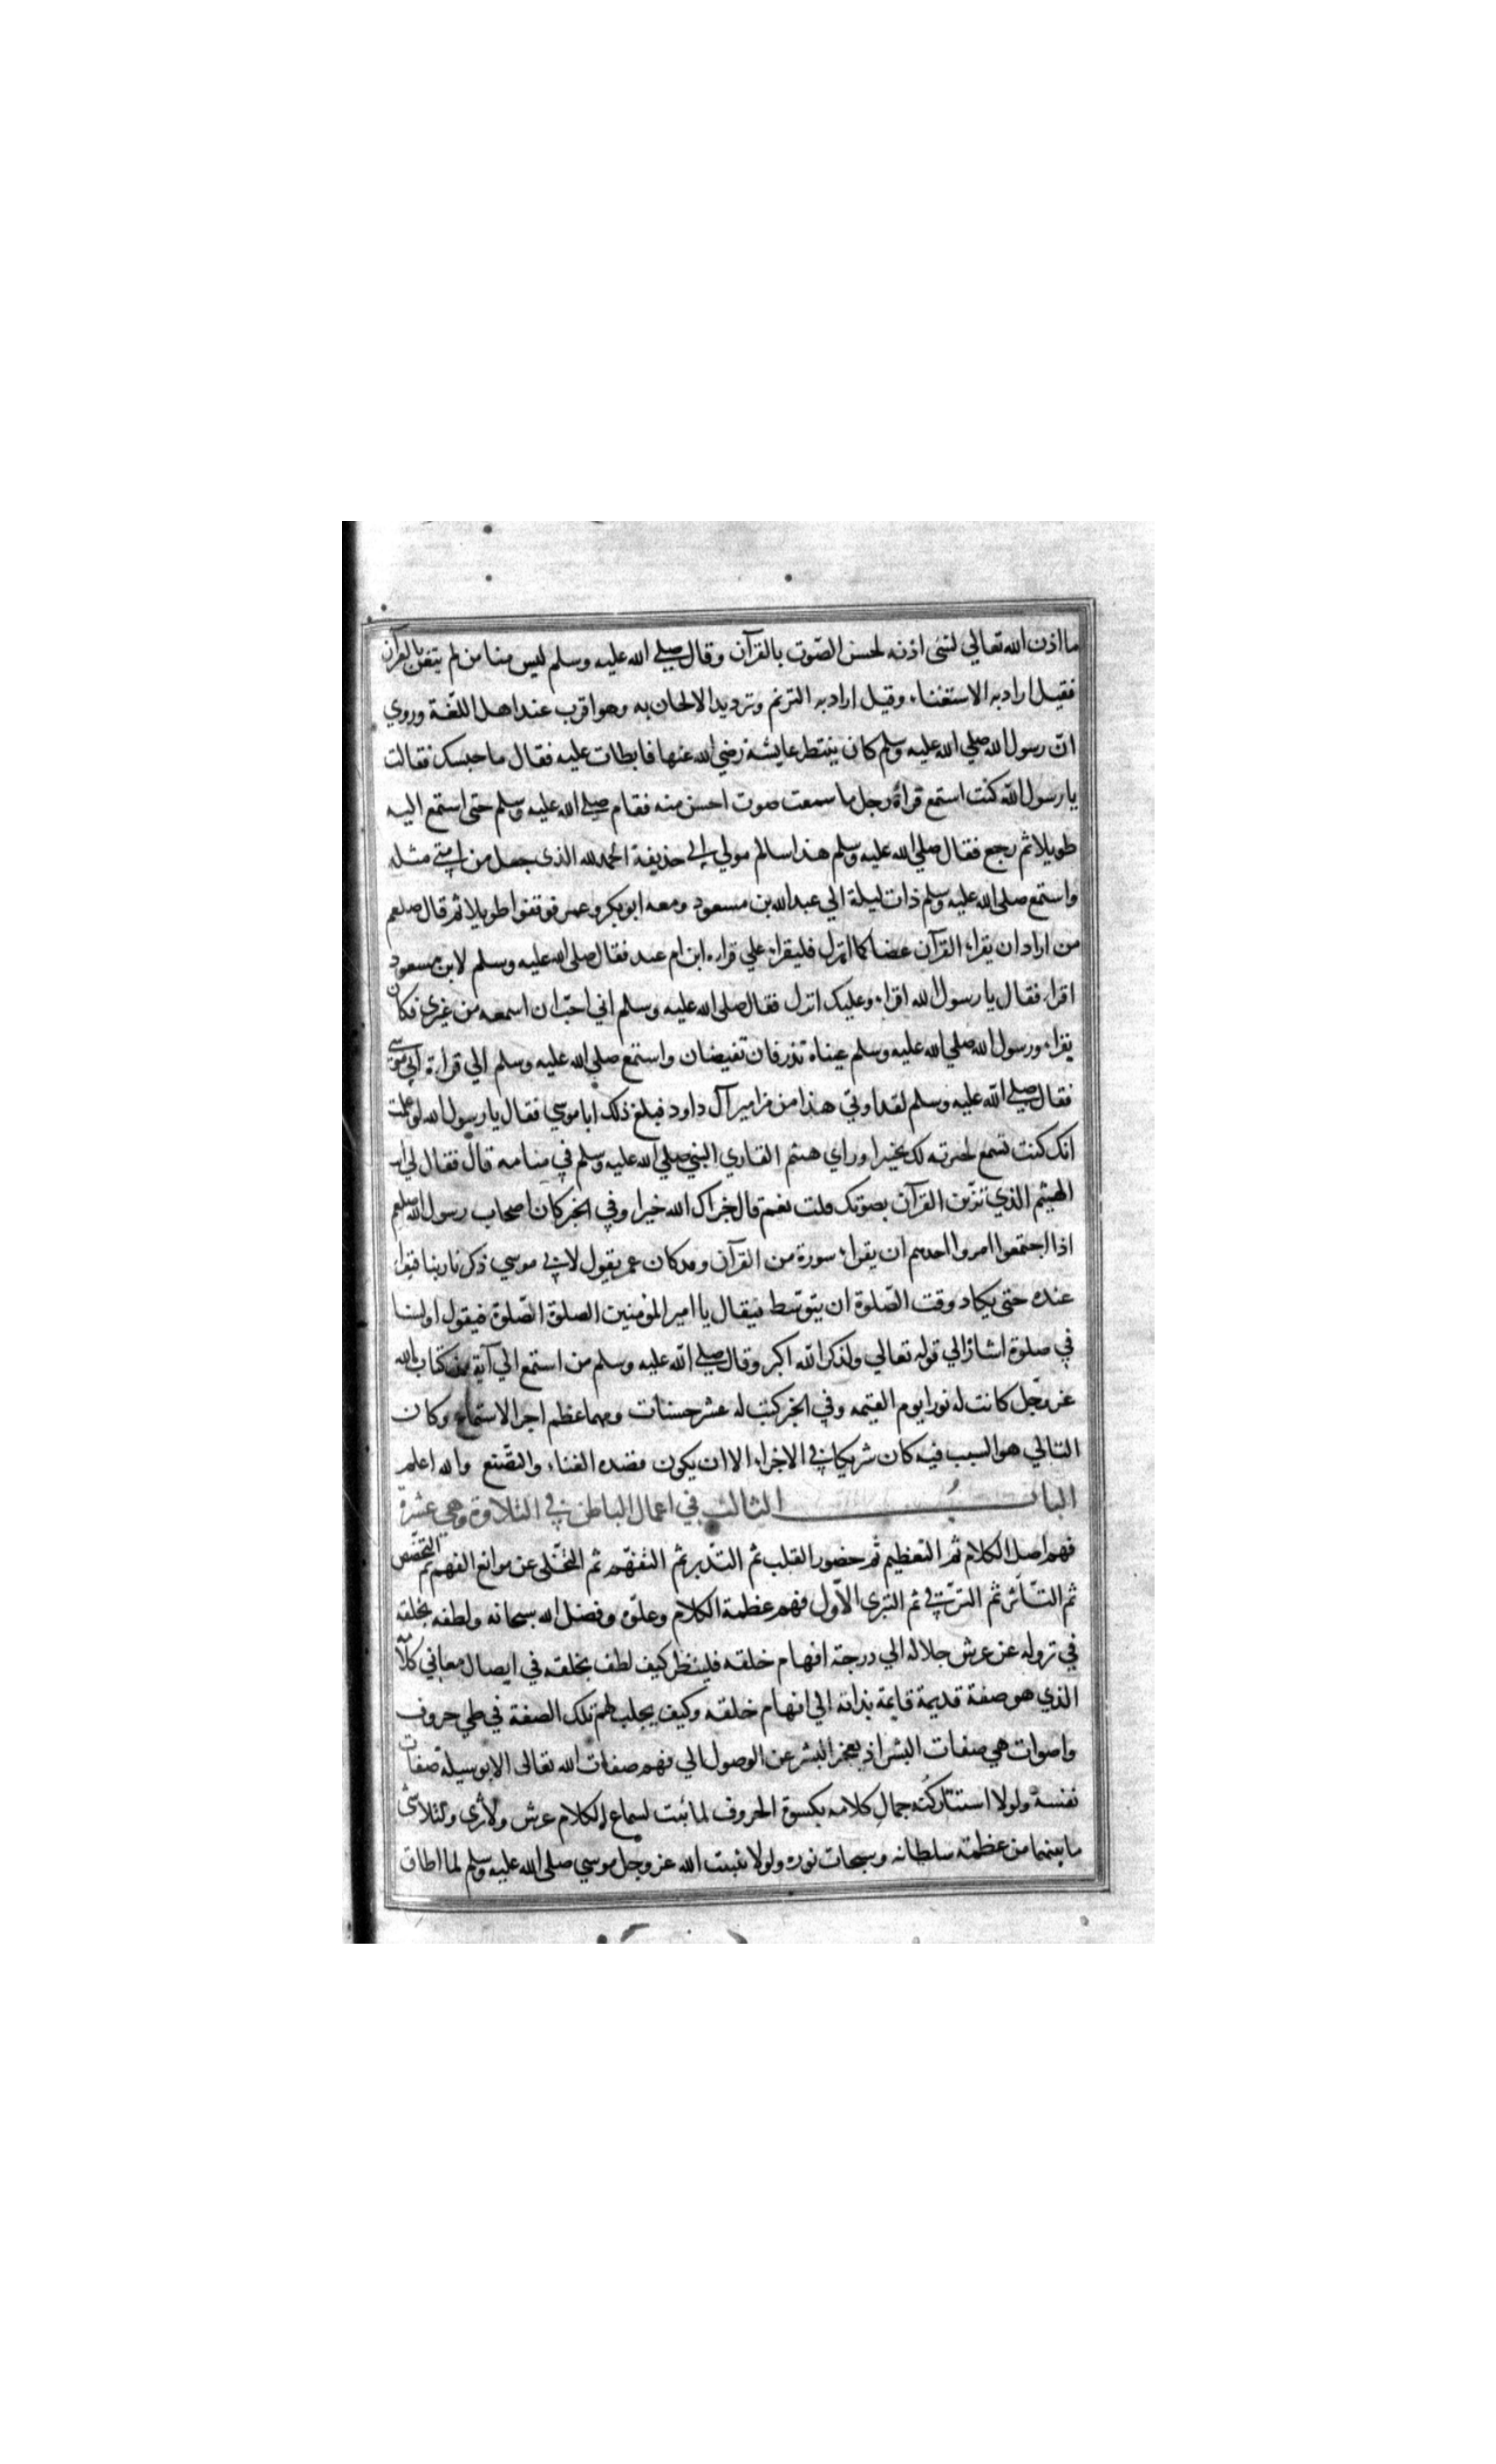 ما اذن الله تعالي لشئ اذنه لحسن الصّوت بالقرآن وقال صلي الله عليه وسلم ليس منا من لم يتغن بالقرآن
فقيل اراد به الاستغناء وقيل اراد به الترنم وترديد الالحان به وهو اقرب عند اهل اللّغة وروي
انّ رسول الله صلي الله عليه وسلم كان ينتظر عايشة رضي الله عنها فابطات عليه فقال ما حبسك فقالت
يا رسول الله كنت استمع قراة رجل ما سمعت صوت احسن منه فقام صلي الله عليه وسلم حتى استمع اليه
طويلا ثم رجع فقال صلي الله عليه وسلم هذا سالم مولي ابي حذيفة الحمد لله الذى جعل من امتي مثله
واستمع صلى الله عليه وسلم ذات ليلة الي عبد الله بن مسعود ومعه ابو بكر وعمر فوقفوا طويلا ثم قال صلعم
من اراد ان يقراء القرآن غضا كما انزل فليقراء علي قراءه ابن ام عبد فقال صلى الله عليه وسلم لابن مسعود
اقراء فقال يا رسول الله اقراء وعليك انزل فقال صلى الله عليه وسلم اني احبّ ان اسمعه من غيرى فكان
يقراء ورسول الله صلي الله عليه وسلم عيناه تذرفان تفيضان واستمع صلي الله عليه وسلم الي قراءة ابي موسي
فقال صلي الله عليه وسلم لقد اوتي هذا من مزامير آل داود فبلغ ذلك ابا موسي فقال يا رسول الله لو علمت
انك كنت تسمع لحبرته لك تحبيرا وراي هيثم القاري النبي صلي الله عليه وسلم في منامه قال فقال لي انت
الهيثم الذي تزين القرآن بصوتك قلت نعم قال جزاك الله خيرا وفي الخبر كان اصحاب رسول الله صلعم
اذا اجتمعوا امروا احدهم ان يقراء سورة من القرآن وقد كان عمر يقول لابي موسي ذكرنا ربنا فيقراء
عنده حتى يكاد وقت الصّلوة ان يتوسّط فيقال يا امير المؤمنين الصلوة الصّلوة فيقول اولسنا
في صلوة اشارة الي قوله تعالي ولذكر الله اكبر وقال صلي الله عليه وسلم من استمع الي آية من كتاب الله
عز وجّل كانت له نورا يوم القيمه وفي الخبر كتب له عشر حسنات ومهما عظم اجر الاستماع وكان
التالي هو السبب فيه كان شريكا في الاجر الا ان يكون قصده الغناء والتصّنع والله اعلم
الباب الثالث في اعمال الباطن في التلاوة وهي عشرة
فهم اصل الكلام ثم التعظيم ثم حضور القلب ثم التدّبر ثم التفهّم ثم التخّلى عن موانع الفهم ثم التخصّص
ثم التّاثر ثم الترّقي ثم التبرى الاّول فهم عظمة الكلام وعلوّه وفضل الله سبحانه ولطفه بخلقه
في نزوله عن عرش جلاله الي درجة افهام خلقه فلينظر كيف لطف بخلقه في ايصال معاني كلامه
الذي هو صفة قديمة قايمة بذاته الي افهام خلقه وكيف يجلب لهم تلك الصفة في طي حروف
واصوات هي صفات البشر اذ يعجز البشر عن الوصول الي فهم صفات الله تعالى الا بوسيلة صفات
نفسه ولولا استتار كنه جمال كلامه بكسوة الحروف لما ثبت لسماع الكلام عرش ولا ثرى ولتلاشى
ما بينهما من عظمة سلطانه وسبحات نوره ولولا تثبيت الله عز وجل موسي صلى الله عليه وسلم لما اطاق